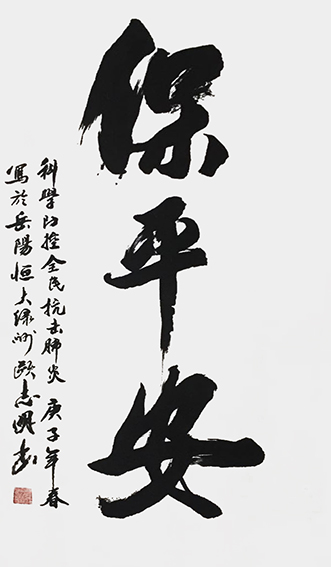 保平安
科學防控全民抗击肺炎 庚子年春
寫於岳陽恒大绿洲 歐志國书